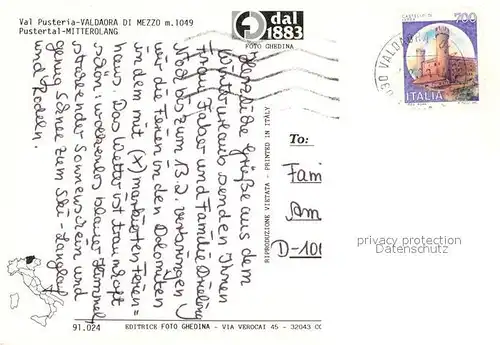 Val Pusteria-VALDAORA DI MEZZO m.1049
Pustertal-MITTEROLANG
dal
1883
FOTO GHEDINA
700
ITALIA
VALDAORA
Herzliche Grüße aus dem
Winterurlaub senden Ihnen
Frau Faber und Familie
Noch bis zum 13.2. verbringen
wir die Ferien in den Dolomiten
in dem mit (x) markierten Ferien=
haus. Das Wetter ist traumhaft
schön: wolkenlos blauer Himmel,
strahlender Sonnenschein und
genug Schnee zum Ski-Langlauf
und Rodeln.
RIPRODUZIONE VIETATA - PRINTED IN ITALY
To:
Fami
Am
D-100
privacy protection
Datenschutz
91.024
EDITRICE FOTO GHEDINA - VIA VEROCAI 45 - 32043 CO